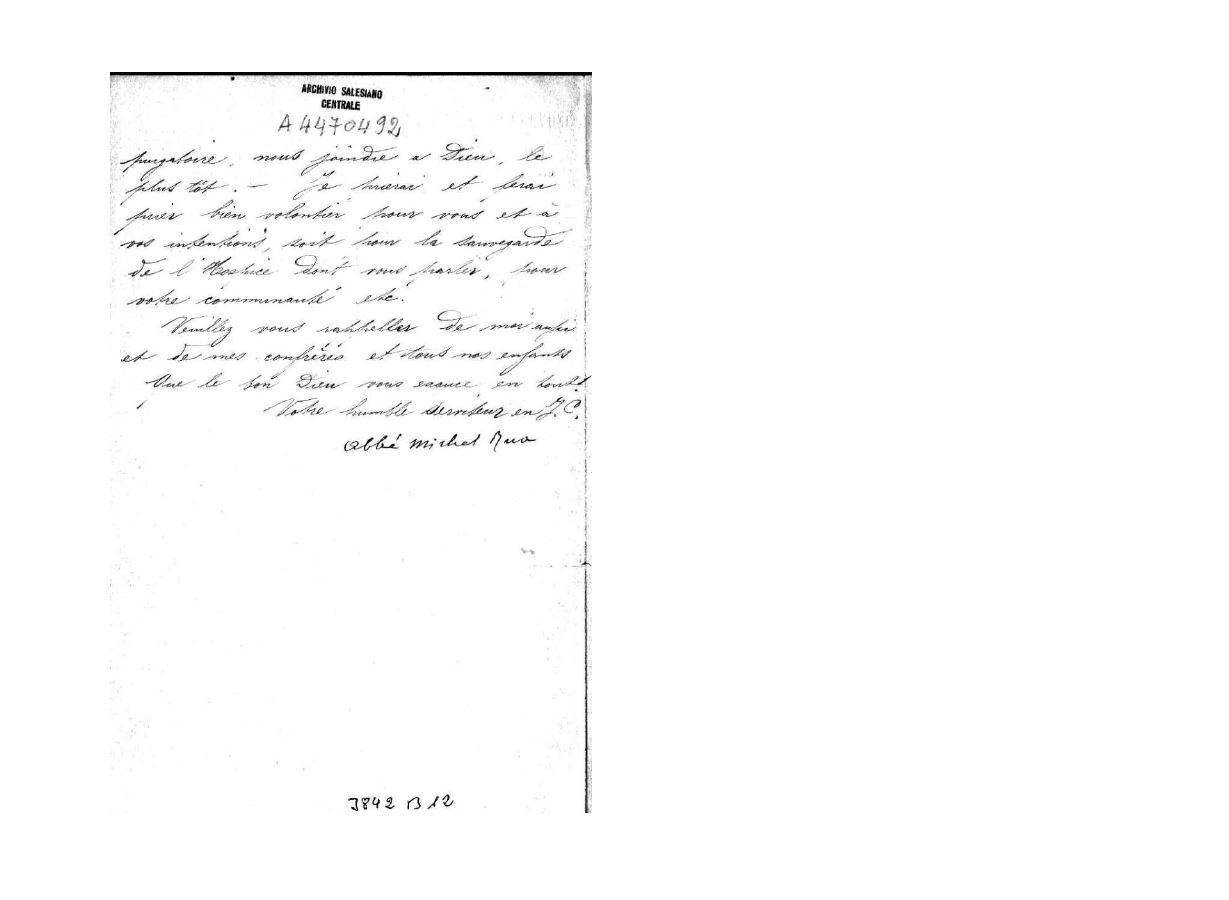 ARCHIVIO SALESIANO
CENTRALE
A4470492
purgatoire, nous joindre a Dieu, le
plus tôt. — Je prierai et ferai
prier bien volontier pour vous et à
vos intentions, soit pour la sauvegarde
de l'Hospice dont vous parlez, pour
votre communauté etc.
Veuillez vous rappeller de moi aussi
et de mes confrères et tous nos enfants
Que le bon Dieu vous exauce en tout!
Votre humble serviteur en J.C.
Abbé Michel Rua
3842 B 12